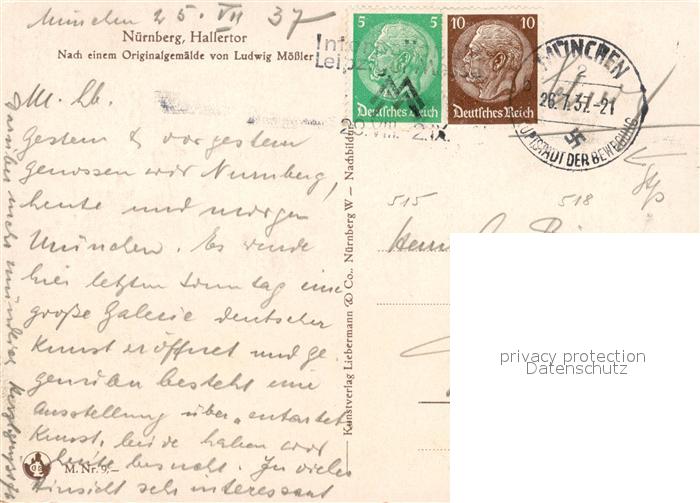 München 25. VII 37
Nürnberg, Hallertor
Nach einem Originalgemälde von Ludwig Mößler
M. Lb.
Gestern & vorgestern
genossen wir Nürnberg,
heute und morgen
München. Es wurde
hier letzten Sonntag eine
große Galerie deutscher
Kunst eröffnet und ge-
genüber besteht eine
Ausstellung über „entartete
Kunst, beide haben wir
heute besucht. In vieler
Hinsicht sehr interessant
Darüber mehr mündlich
M. Nr. 9,–
Kunstverlag Liebermann & Co., Nürnberg W – Nachbildung
5 5
Deutsches Reich
10 10
Deutsches Reich
Leipziger Messe
29. VIII. - 2. IX.
MÜNCHEN
2
26.7.37.-21
HAUPTSTADT DER BEWEGUNG
515
518
Herrn
privacy protection
Datenschutz